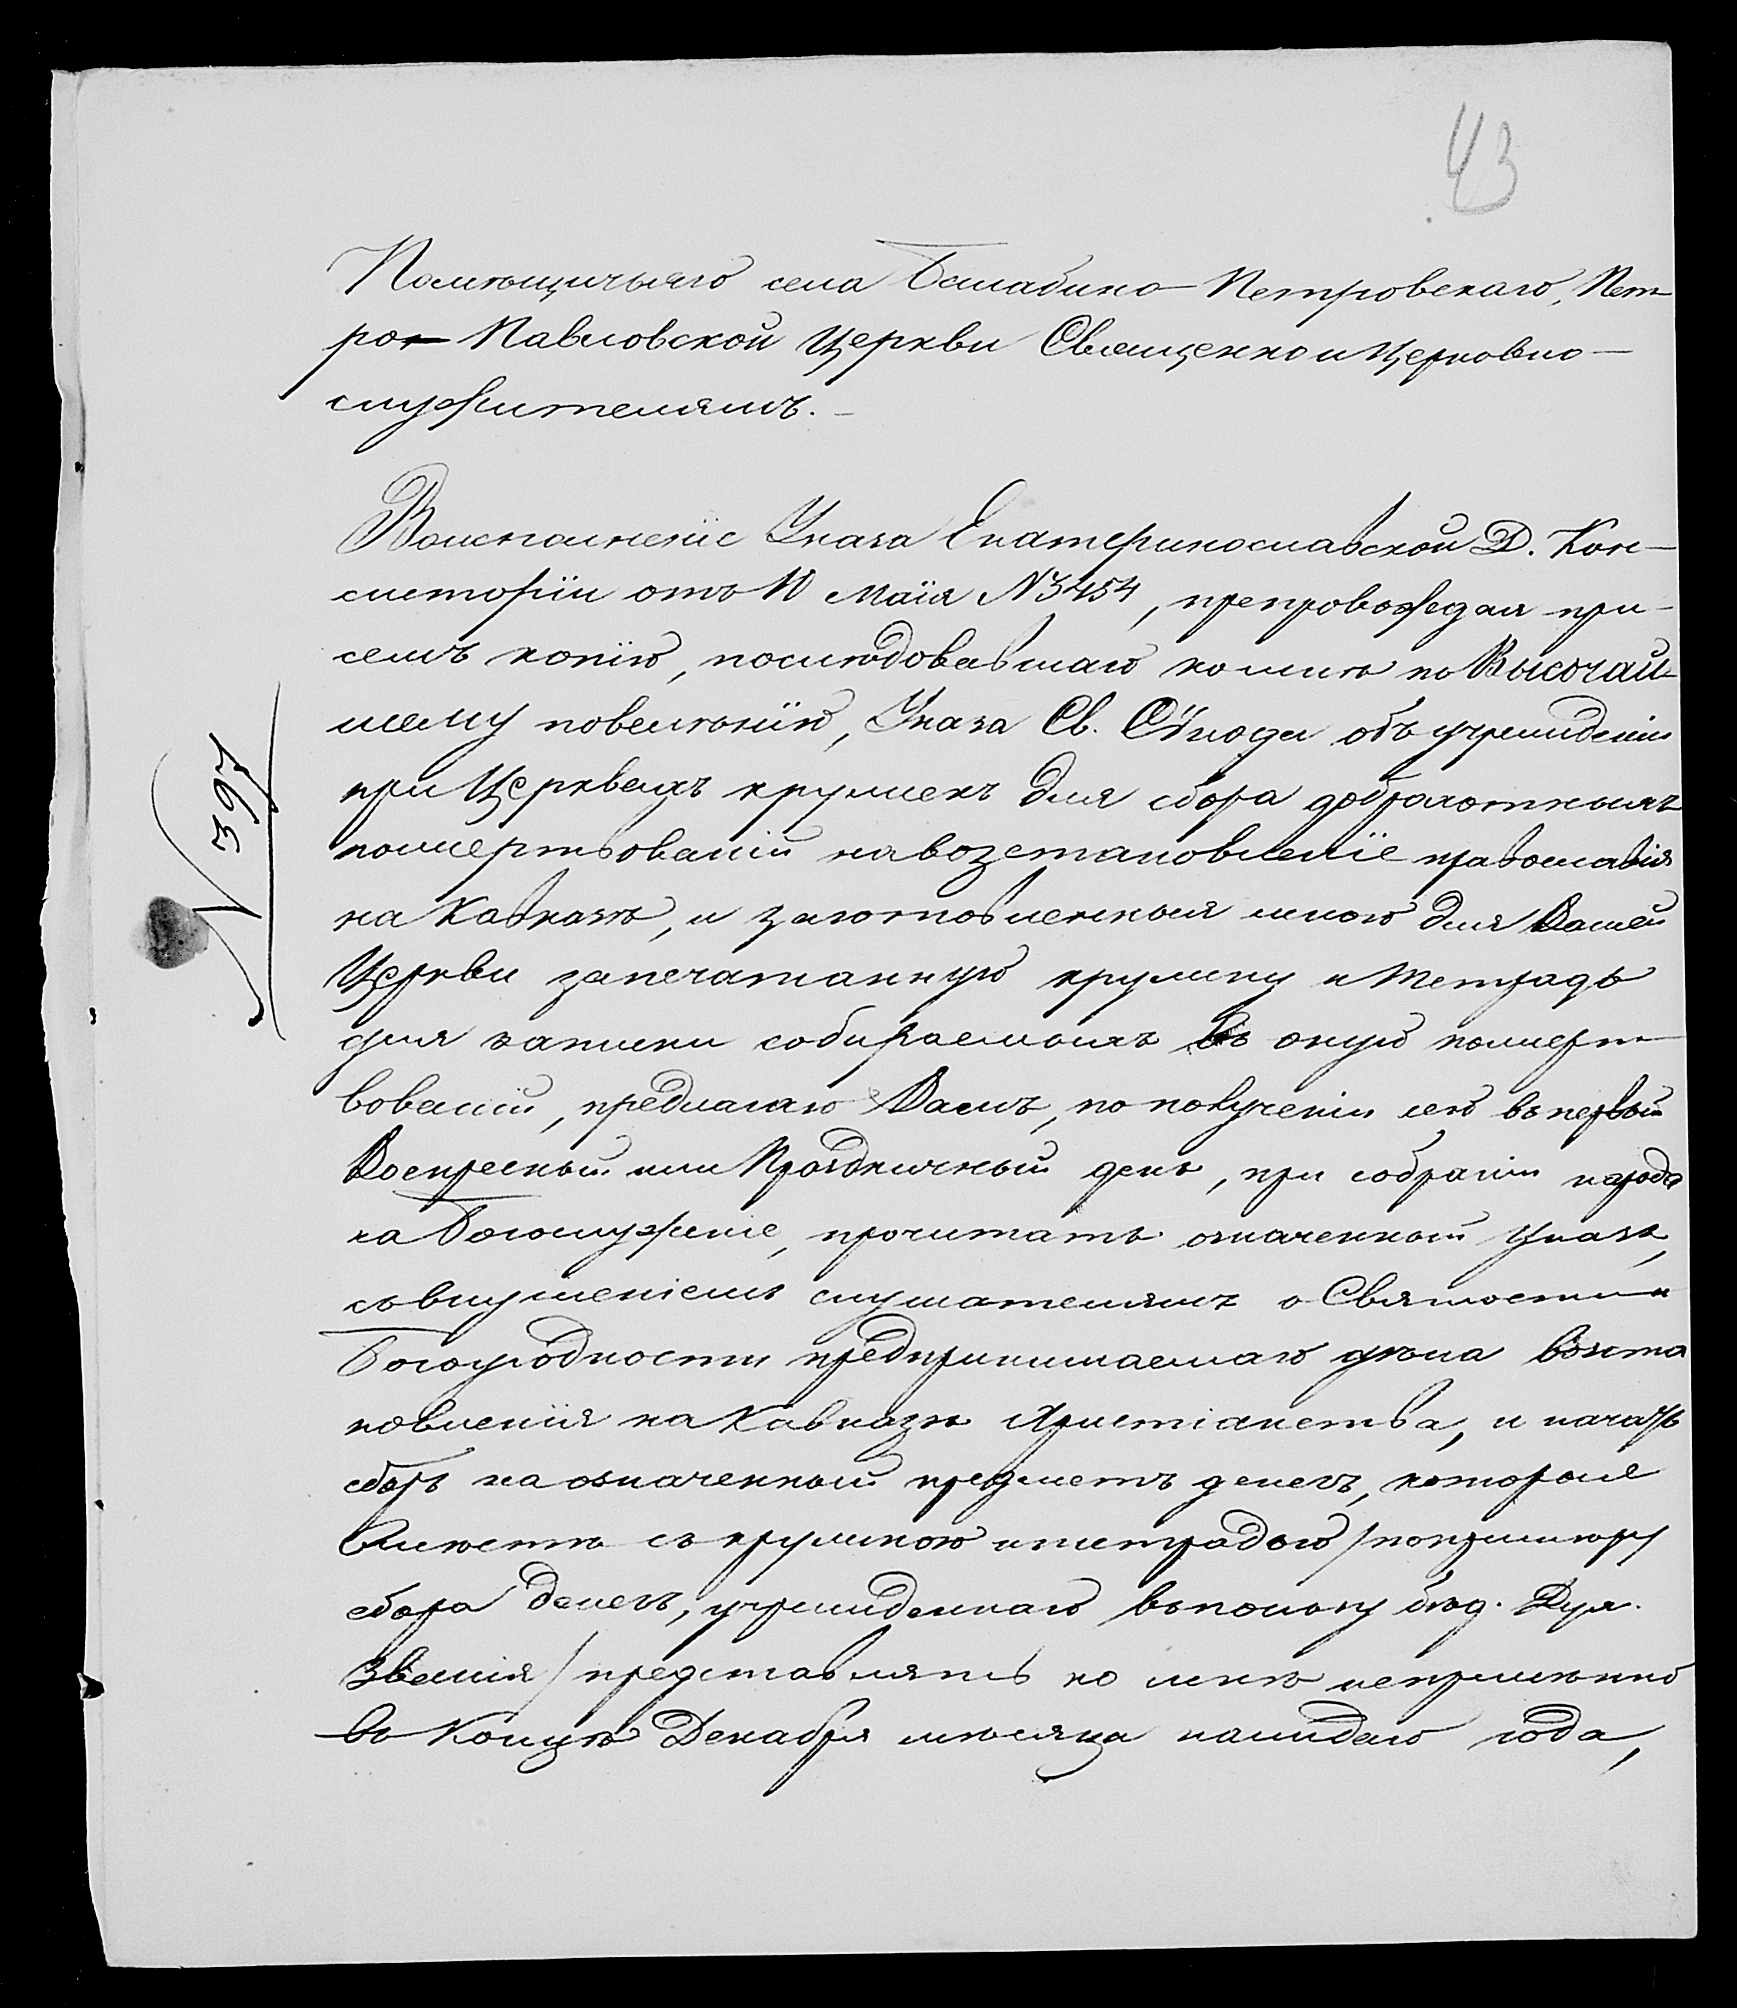 43
Помѣщичьяго села Балабино-Петровскаго, Пет-
ро-Павловской Церкви Священно и Церковно-
служителямъ.
Воисполненіе Указа Екатеринославской Д. Кон-
систоріи отъ 10 Маія N 3454, препровождая при-
семъ копію, послѣдовавшаго комнѣ по Высочай-
шему повелѣнію, Указа Св. Сѵнода объ учрежденіи
при Церквахъ кружекъ для сбора доброхотныхъ
пожертвованій навозстановленіе православія
на Кавказѣ, и заготовленныя мною для Вашей
Церкви запечатанную кружку и тетрадь
для записки собираемыхъ въ оную пожерт-
вованій, предлагаю Вамъ, по полученіи сего въ первый
Воскресный или Праздничный день, при собраніи народа
на Богослуженіе, прочитать означенный Указъ,
совнушеніемъ слушателямъ о Святости и
Богоугодности предпринимаемаго дѣла возста
новленія на Кавказѣ Христіанства, и начать
сборъ на означенный предметъ денегъ, которые
вмѣстѣ съ кружкою и тетрадью /попримѣру
сбора денегъ, учрежденнаго въ пользу бѣд. Дух.
званія/ представлять ко мнѣ непремѣнно
въ Концѣ Декабря мѣсяца каждаго года,
N 397